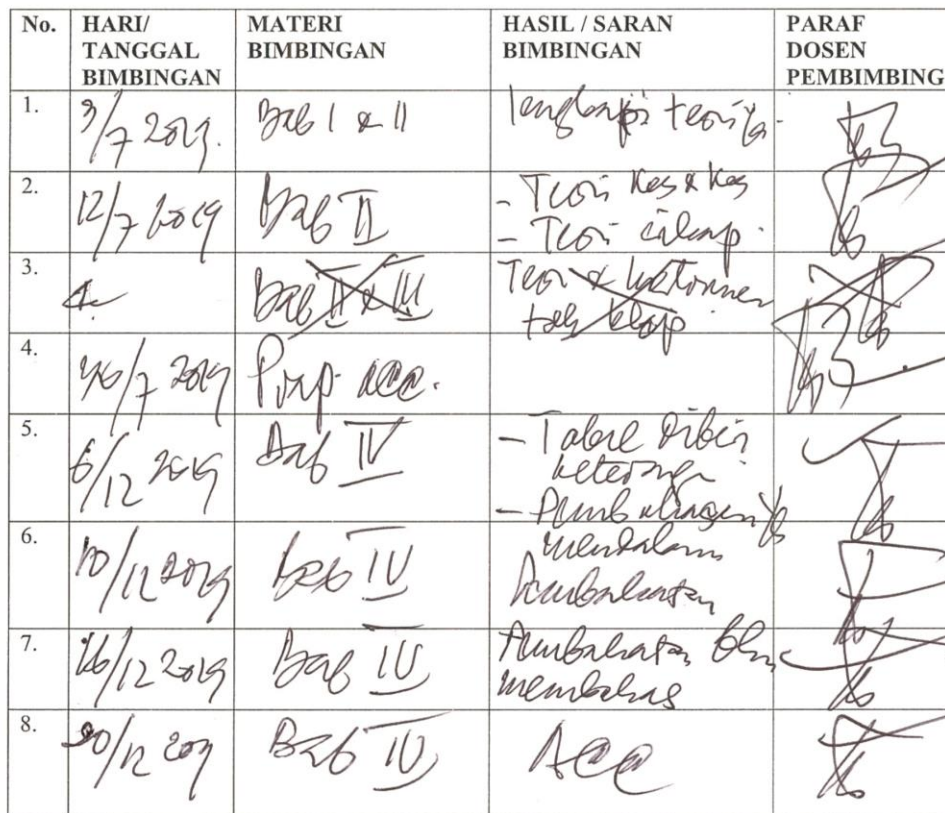 No. HARI/ TANGGAL BIMBINGAN MATERI BIMBINGAN HASIL / SARAN BIMBINGAN PARAF DOSEN PEMBIMBING
1. 3/7 2019. Bab I & II lengkapi teorinya.
2. 12/7 2019 Bab II - Teori
- Teori
3. Bab II & III Teori & kuesioner
4. /7 2019 Prop acc.
5. 6/12 2019 Bab IV - Tabel diberi
keterangan
- Pembahasan yg
mendalam
6. 10/12 2019 Bab IV Pembahasan
7. 16/12 2019 Bab IV Pembahasan blm
membahas
8. 20/12 2019 Bab IV ACC